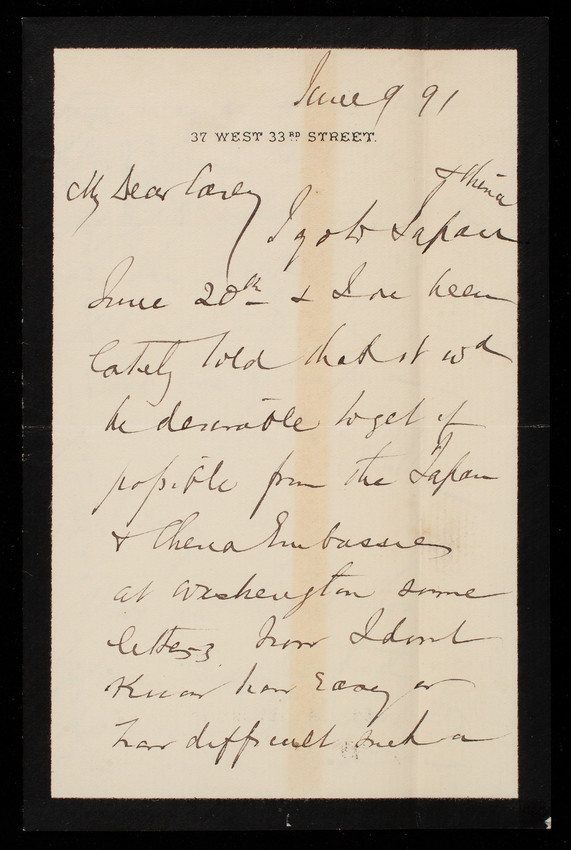 June 9 91
37 WEST 33RD STREET.
My Dear Casey
& China
I go to Japan
June 20th & I've been
lately told that it wd
be desirable to get if
possible from the Japan
& China Embassies
at Washington some
letters now I don't
know how easy or
how difficult such a